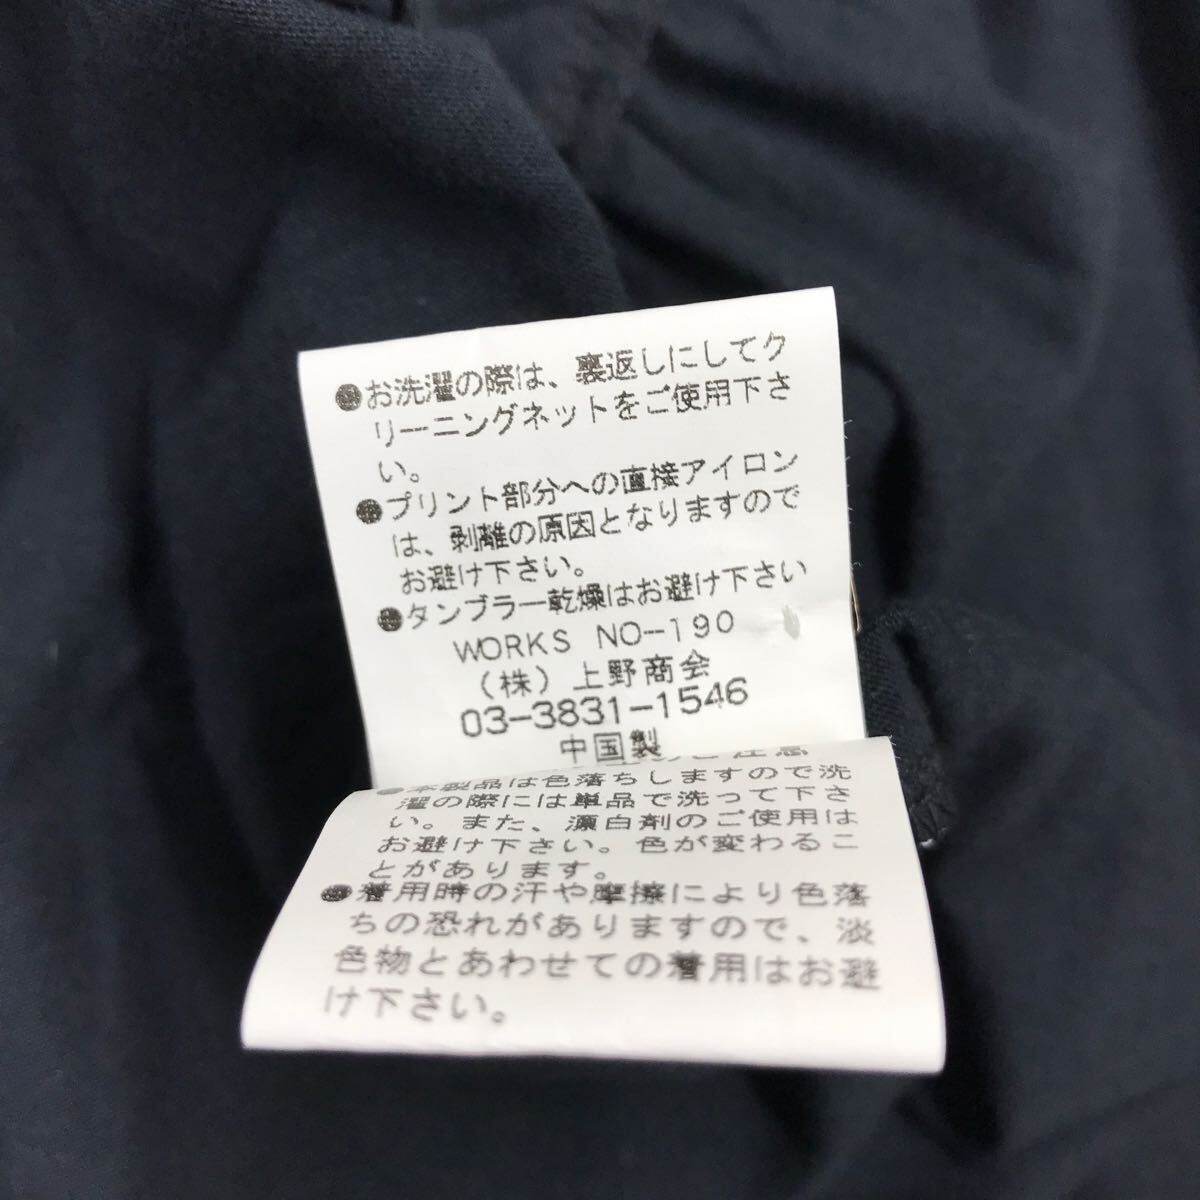 ●お洗濯の際は、裏返しにしてク
リーニングネットをご使用下さ
い。
●プリント部分への直接アイロン
は、剥離の原因となりますので
お避け下さい。
●タンブラー乾燥はお避け下さい
WORKS NO-190
(株)上野商会
03-3831-1546
中国製
ご注意
●本製品は色落ちしますので洗
濯の際には単品で洗って下さ
い。また、漂白剤のご使用は
お避け下さい。色が変わるこ
とがあります。
●着用時の汗や摩擦により色落
ちの恐れがありますので、淡
色物とあわせての着用はお避
け下さい。